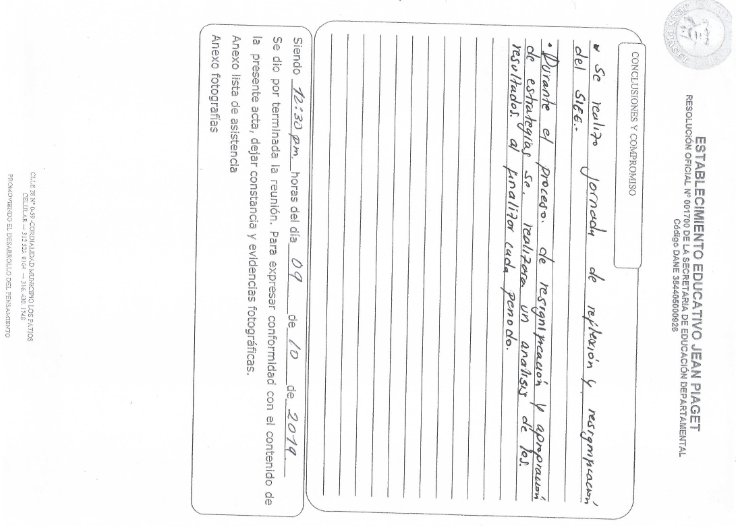 ESTABLECIMIENTO EDUCATIVO JEAN PIAGET
RESOLUCIÓN OFICIAL Nº 001700 DE LA SECRETARIA DE EDUCACIÓN DEPARTAMENTAL
Código DANE 354405000928
CONCLUSIONES Y COMPROMISO
Se realizo jornada de reflexión y resignificación
del SIEE.
• Durante el proceso. de resignificación y apropiación
de estrategias se. realizara un analisis de los.
resultados. al finalizar cada periodo.
Siendo 12:30 pm horas del día 09 de 10 de 2019
Se dio por terminada la reunión. Para expresar conformidad con el contenido de
la presente acta, dejar constancia y evidencias fotográficas.
Anexo lista de asistencia
Anexo fotografías
MUNICIPIO LOS PATIOS
CELULAR
PROMOVIENDO EL DESARROLLO DEL PENSAMIENTO